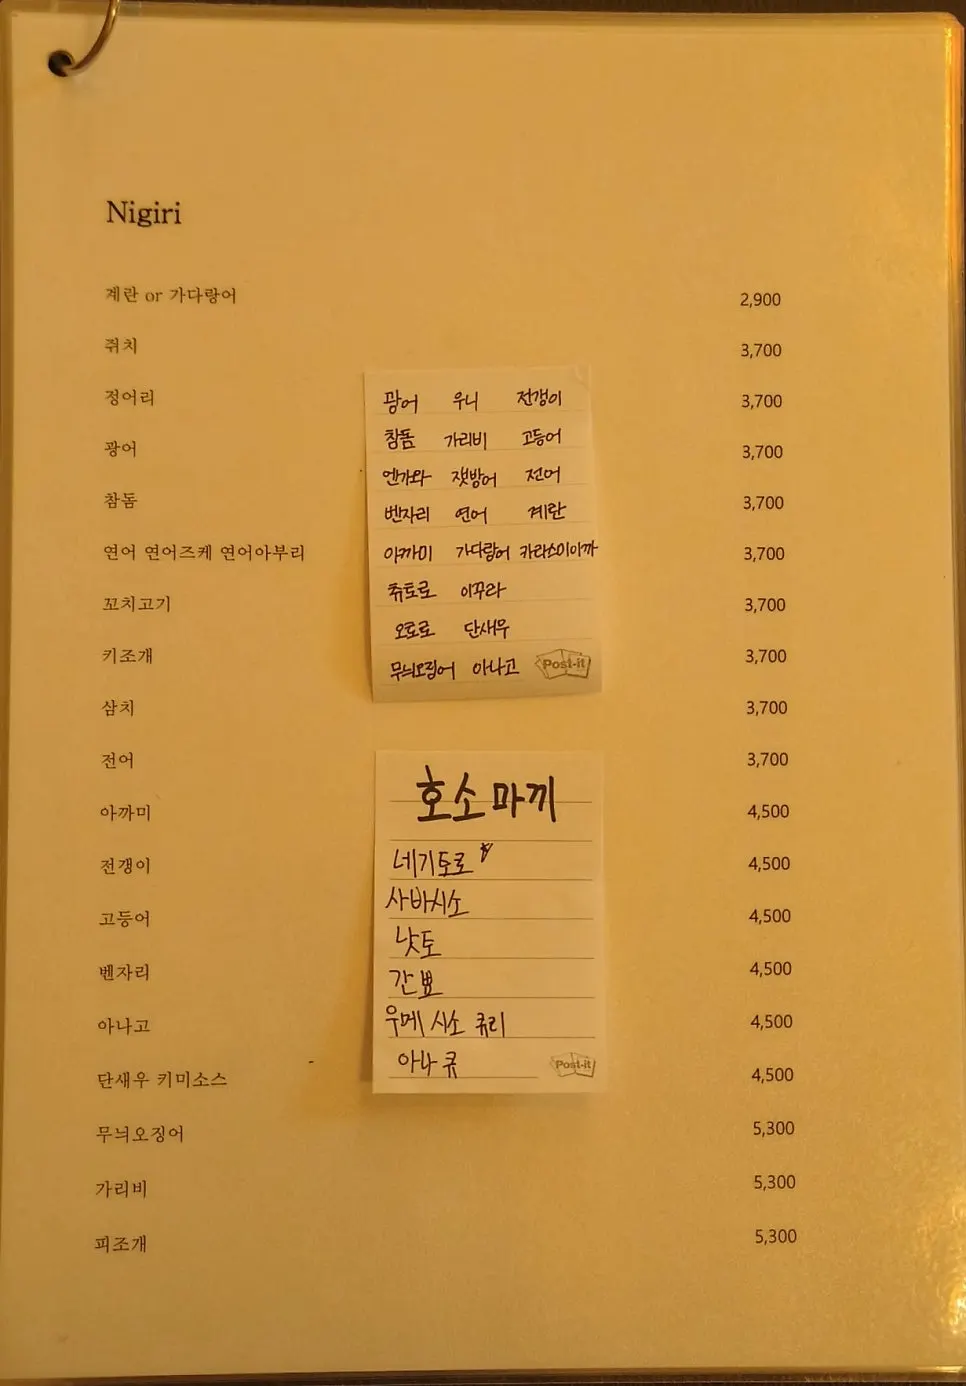 Nigiri
계란 or 가다랑어 2,900
쥐치 3,700
정어리 3,700
광어 3,700
참돔 3,700
연어 연어즈케 연어아부리 3,700
꼬치고기 3,700
키조개 3,700
삼치 3,700
전어 3,700
아까미 4,500
전갱이 4,500
고등어 4,500
벤자리 4,500
아나고 4,500
단새우 키미소스 4,500
무늬오징어 5,300
가리비 5,300
피조개 5,300
광어 우니 전갱이
참돔 가리비 고등어
엔가와 잿방어 전어
벤자리 연어 계란
아까미 가다랑어 카라스미이까
츄토로 이꾸라
오토로 단새우
무늬오징어 아나고
Post-it
호소마끼
네기토로
사바시소
낫토
간뾰
우메 시소 큐리
아나큐
Post-it